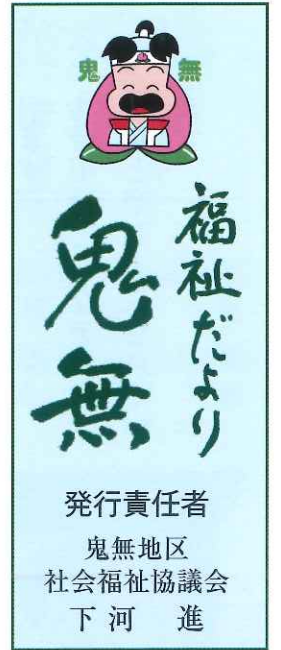 鬼 無
福祉だより
鬼無
発行責任者
鬼無地区
社会福祉協議会
下河 進